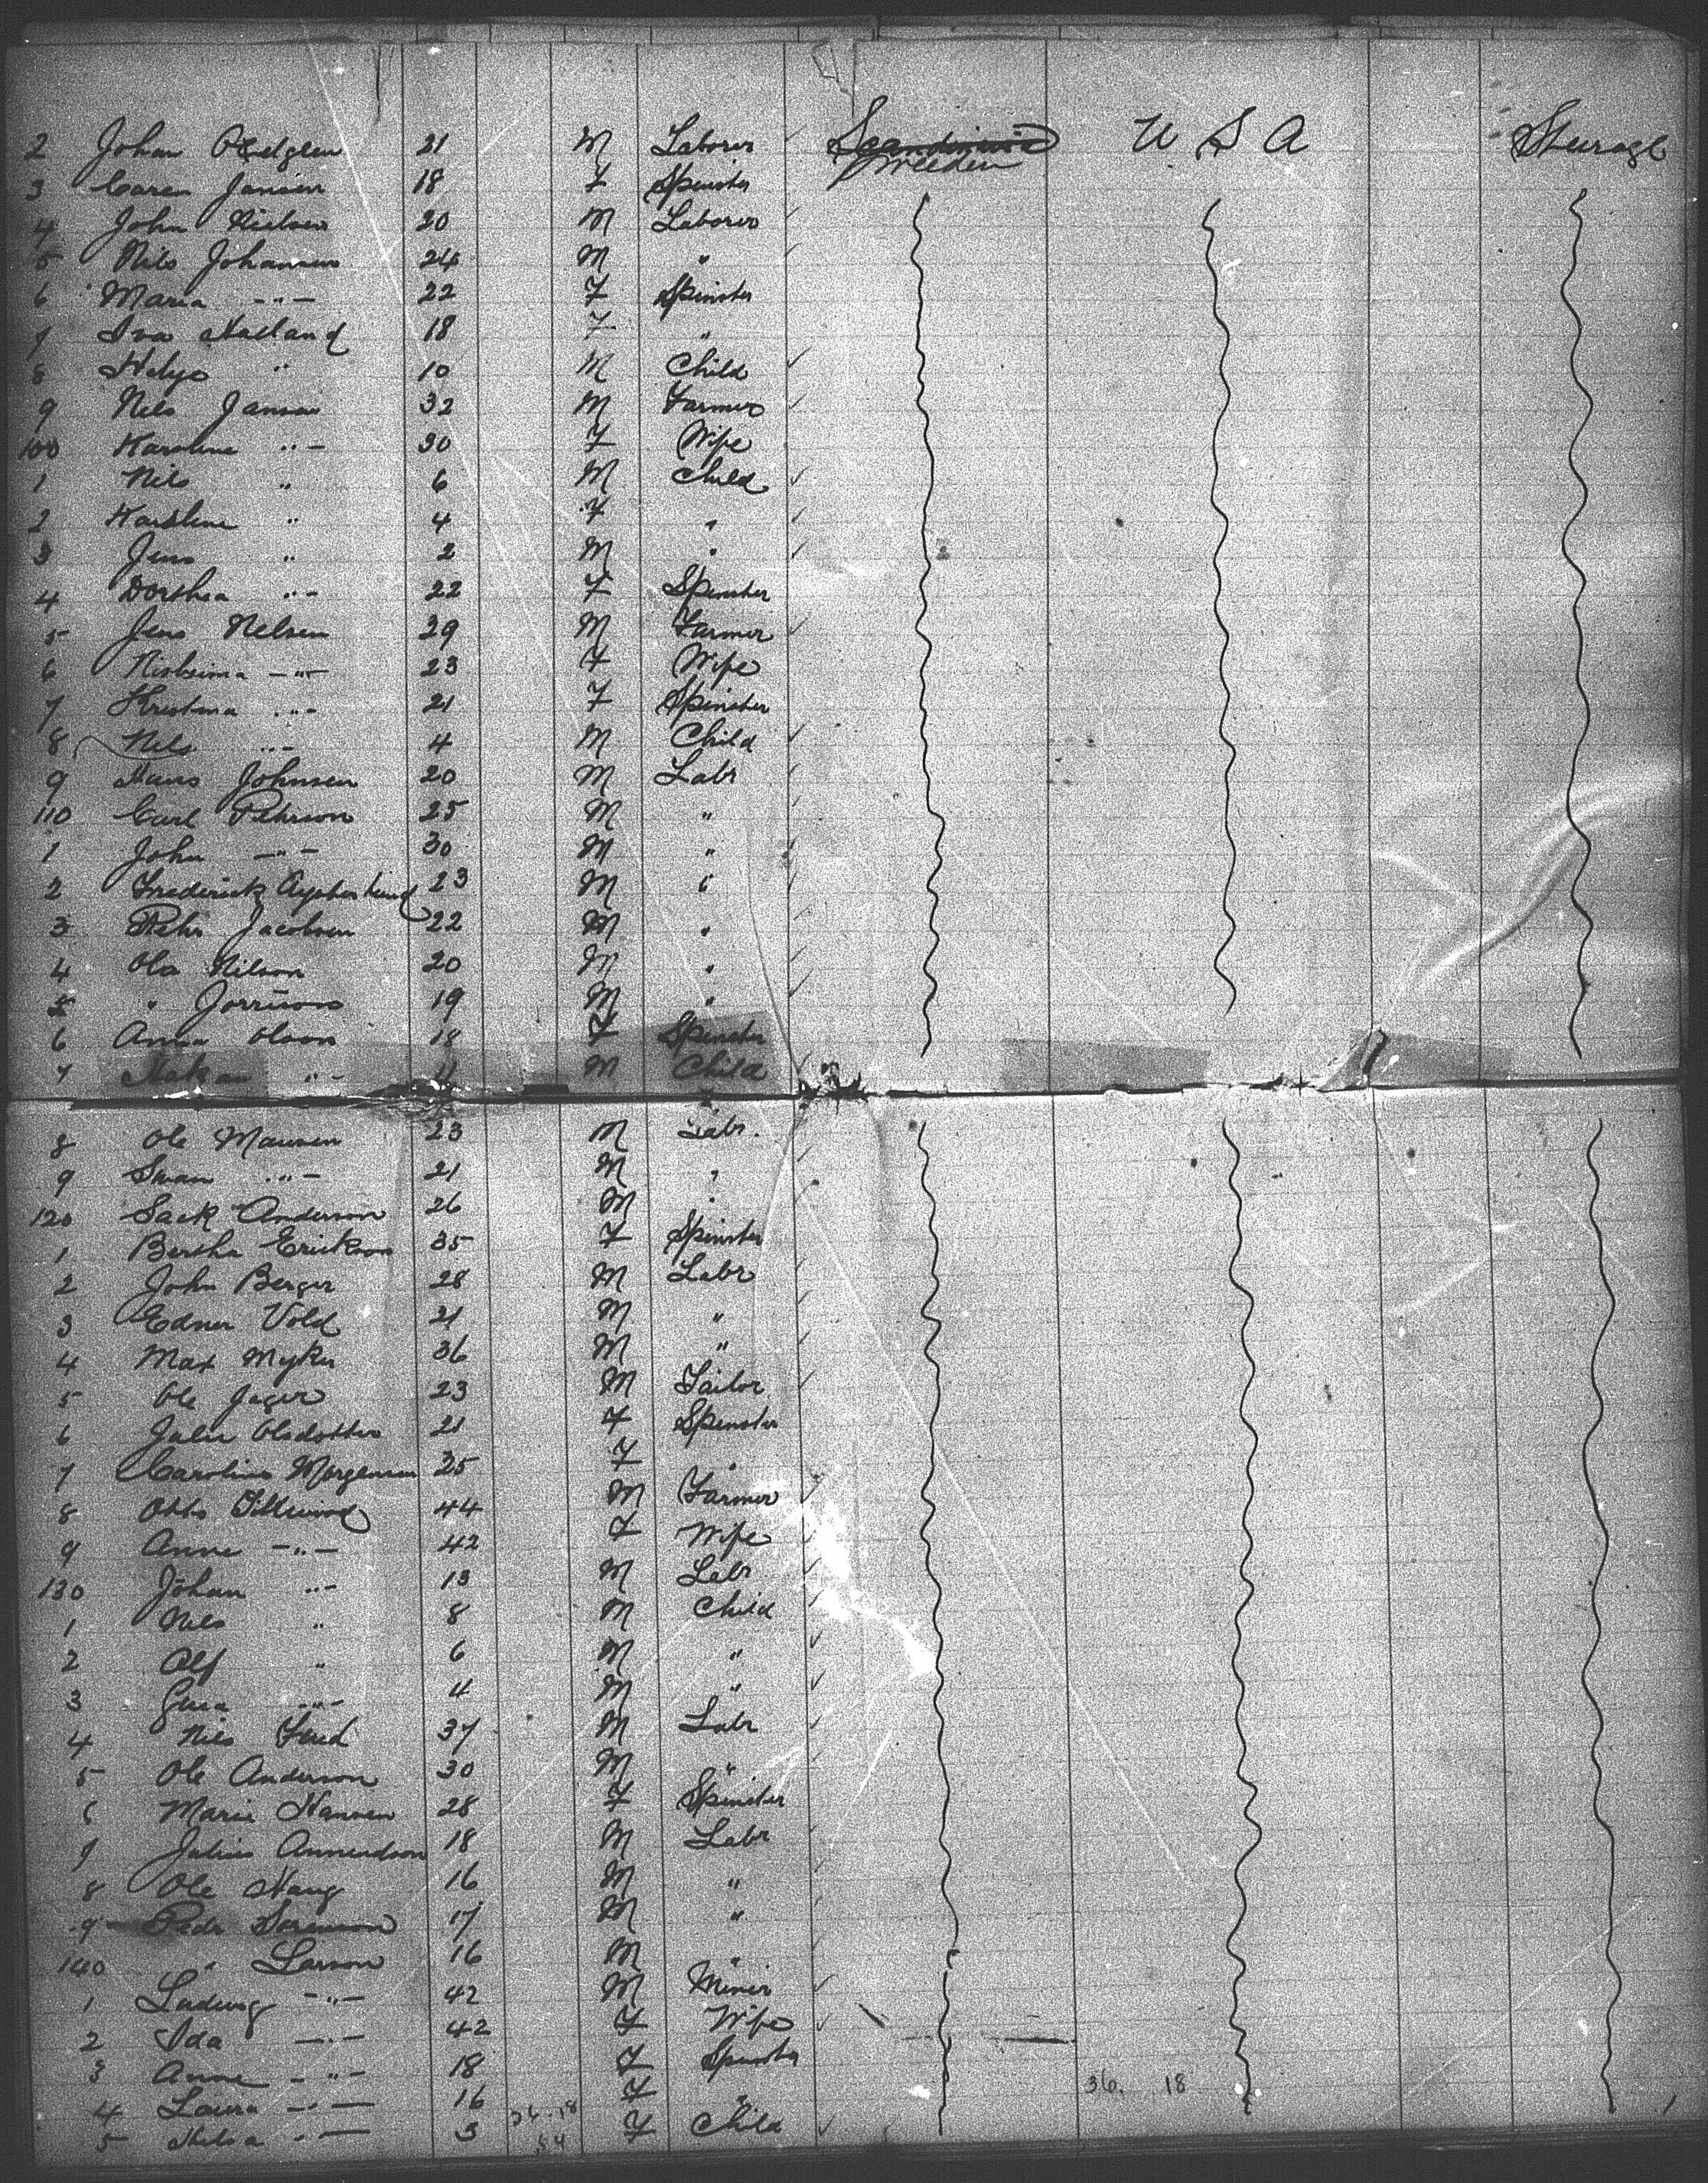 2 Johan 21 M Laborer Scandinavia U S A Steerage
Sweeden
3 Caren Jansen 18 F Spinster
4 John Nielsen 20 M Laborer
5 Nils Johansen 24 M "
6 Maria -"- 22 F Spinster
7 Iva Nalland 18 F "
8 Helge " 10 M Child
9 Nels Jansen 32 M Farmer
100 Karoline "- 30 F Wife
1 Nils " 6 M Child
2 Karoline " 4 F "
3 Jens " 2 M "
4 Dorthea "- 22 F Spinster
5 Jens Nelsen 29 M Farmer
6 -"- 23 F Wife
7 Kristina "- 21 F Spinster
8 Nels "- 4 M Child
9 Hans Johnsen 20 M Labr
110 Carl Pehrson 25 M "
1 John -"- 30 M "
2 Frederick 23 M "
3 Pehr Jacobsen 22 M "
4 Ola Nilson 20 M "
5 " 19 M "
6 Anna Olson 18 F Spinster
7 Hakan "- 11 M Child
8 Ole Mausen 23 M Labr.
9 Swan "- 21 M "
120 Sack Anderson 26 M "
1 Bertha Erickson 35 F Spinster
2 John Berger 28 M Labr
3 Edner Vold 21 M "
4 Max Myker 36 M "
5 Ole Jager 23 M Tailor
6 Julie Olsdotter 21 F Spinster
7 Caroline Morgensen 25 F "
8 Otto 44 M Farmer
9 Anne -"- 42 F Wife
130 Johan "- 13 M Labr
1 Nils " 8 M Child
2 Alf " 6 M "
3 "- 4 M "
4 Nils 37 M Labr
5 Ole Anderson 30 M "
6 Marie Hansen 28 F Spinster
7 Julius Amundson 18 M Labr
8 Ole Haug 16 M "
9 Peder Sorenson 17 M "
140 " Larson 16 M "
1 Ludwig -"- 42 M Miner
2 Ida -"- 42 F Wife
3 Anne -"- 18 F Spinster
36. 18
4 Laura -"- 16 F "
5 -"- 3 F Child